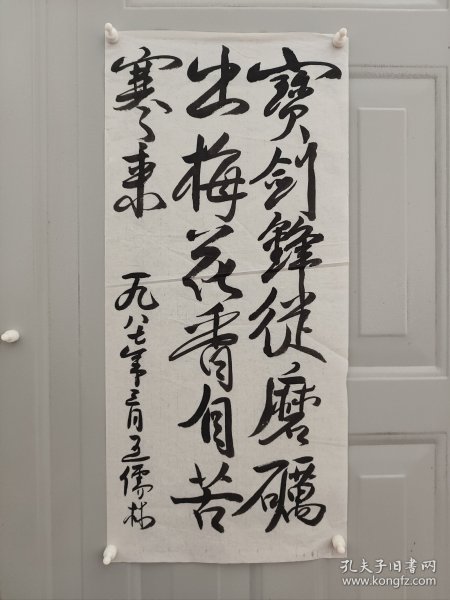 寶劍鋒從磨礪
出梅花香自苦
寒來
一九八七年三月
儒林
孔夫子旧书网
www.kongfz.com